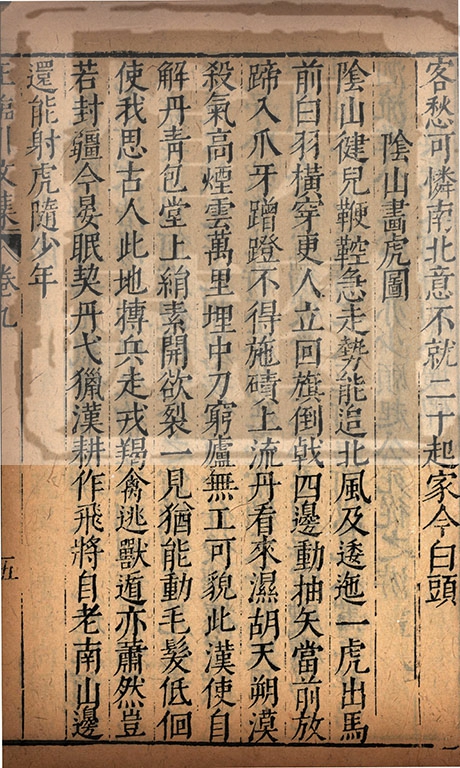 客愁可憐南北意不就二十起家今白頭
陰山畫虎圖
陰山健兒鞭鞚急走勢能追北風及逶迤一虎出馬
前白羽橫穿更人立回旗倒戟四邊動抽矢當前放
蹄入爪牙蹭蹬不得施磧上流丹看來濕胡天朔漠
殺氣高煙雲萬里埋中刀窮廬無工可貌此漢使自
解丹青包堂上絹素開欲裂一見猶能動毛髮低佪
使我思古人此地摶兵走戎羯禽逃獸遁亦蕭然豈
若封疆今晏眠契丹弋獵漢耕作飛將自老南山邊
還能射虎隨少年
王臨川文集 卷九 五